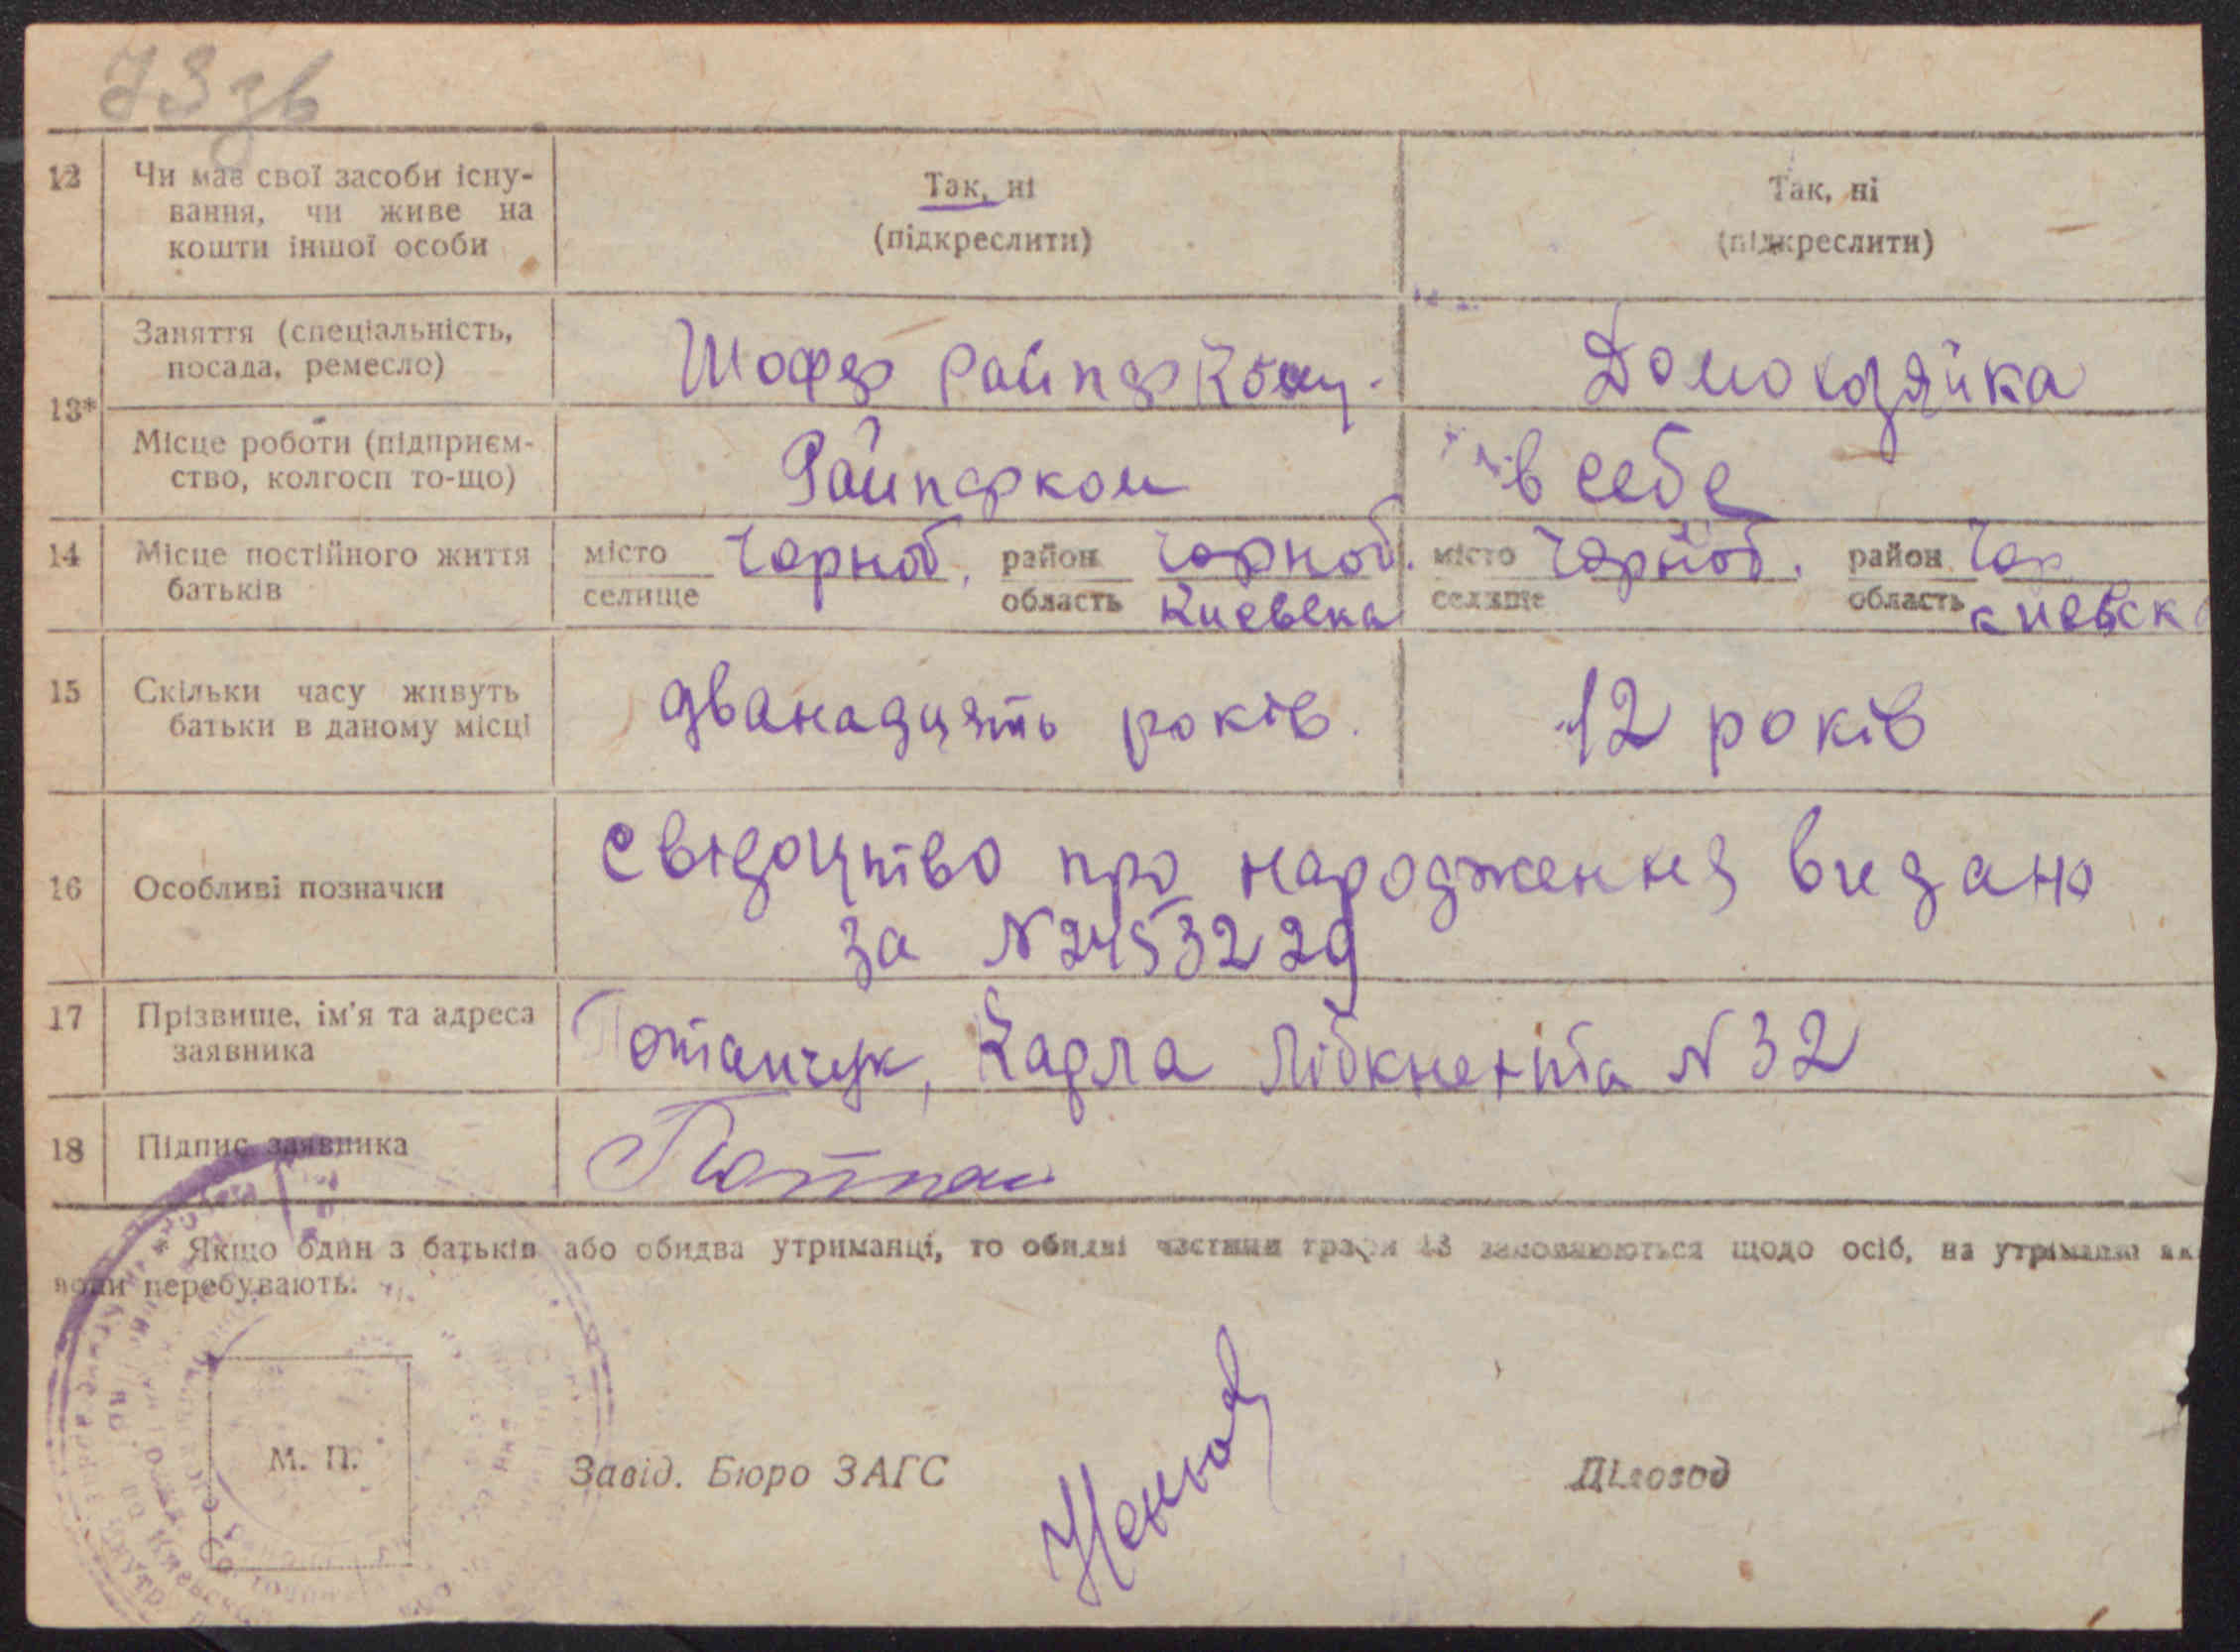 73 зв
12 Чи має свої засоби існу-
вання, чи живе на
кошти іншої особи
Так, ні
(підкреслити)
Так, ні
(підкреслити)
13*
Заняття (спеціальність,
посада, ремесло)
Шофер Райпарком.
Домохозяйка
Місце роботи (підприєм-
ство, колгосп то-що)
Райпарком
в себе
14 Місце постійного життя
батьків
місто
селище
Чорноб.
район Чорноб.
область Киевска
місто
селище
Чорноб.
район Чор
область киевска
15 Скільки часу живуть
батьки в даному місці
дванадцять років.
12 років
16 Особливі позначки
Свідоцтво про народження видано
за №2453229
17 Прізвище, ім'я та адреса
заявника
Потапчук, Карла Лібкнехта №32
18 Підпис заявника
Якщо один з батьків або обидва утриманці, то обидві частини графи 13 заповнюються щодо осіб, на утриманні як
вони перебувають.
М. П.
Завід. Бюро ЗАГС
Діловод